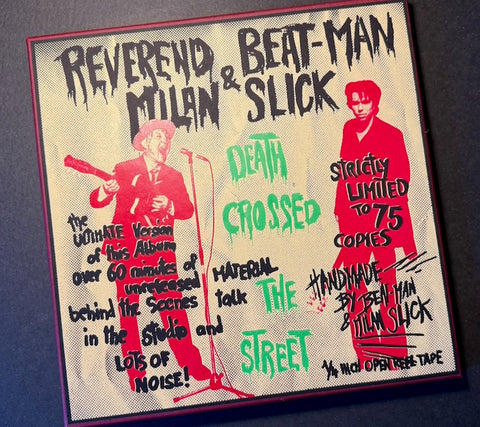 REVEREND BEAT-MAN
& MILAN SLICK
DEATH
CROSSED
THE
STREET
STRICTLY
LIMITED
TO 75
COPIES
HANDMADE
BY BEAT-MAN
& MILAN SLICK
1/4 INCH OPEN REEL TAPE
the
ULTIMATE Version
of this Album
over 60 minutes of
unreleased MATERIAL
behind the Scenes talk
in the studio and
LOTS OF
NOISE!